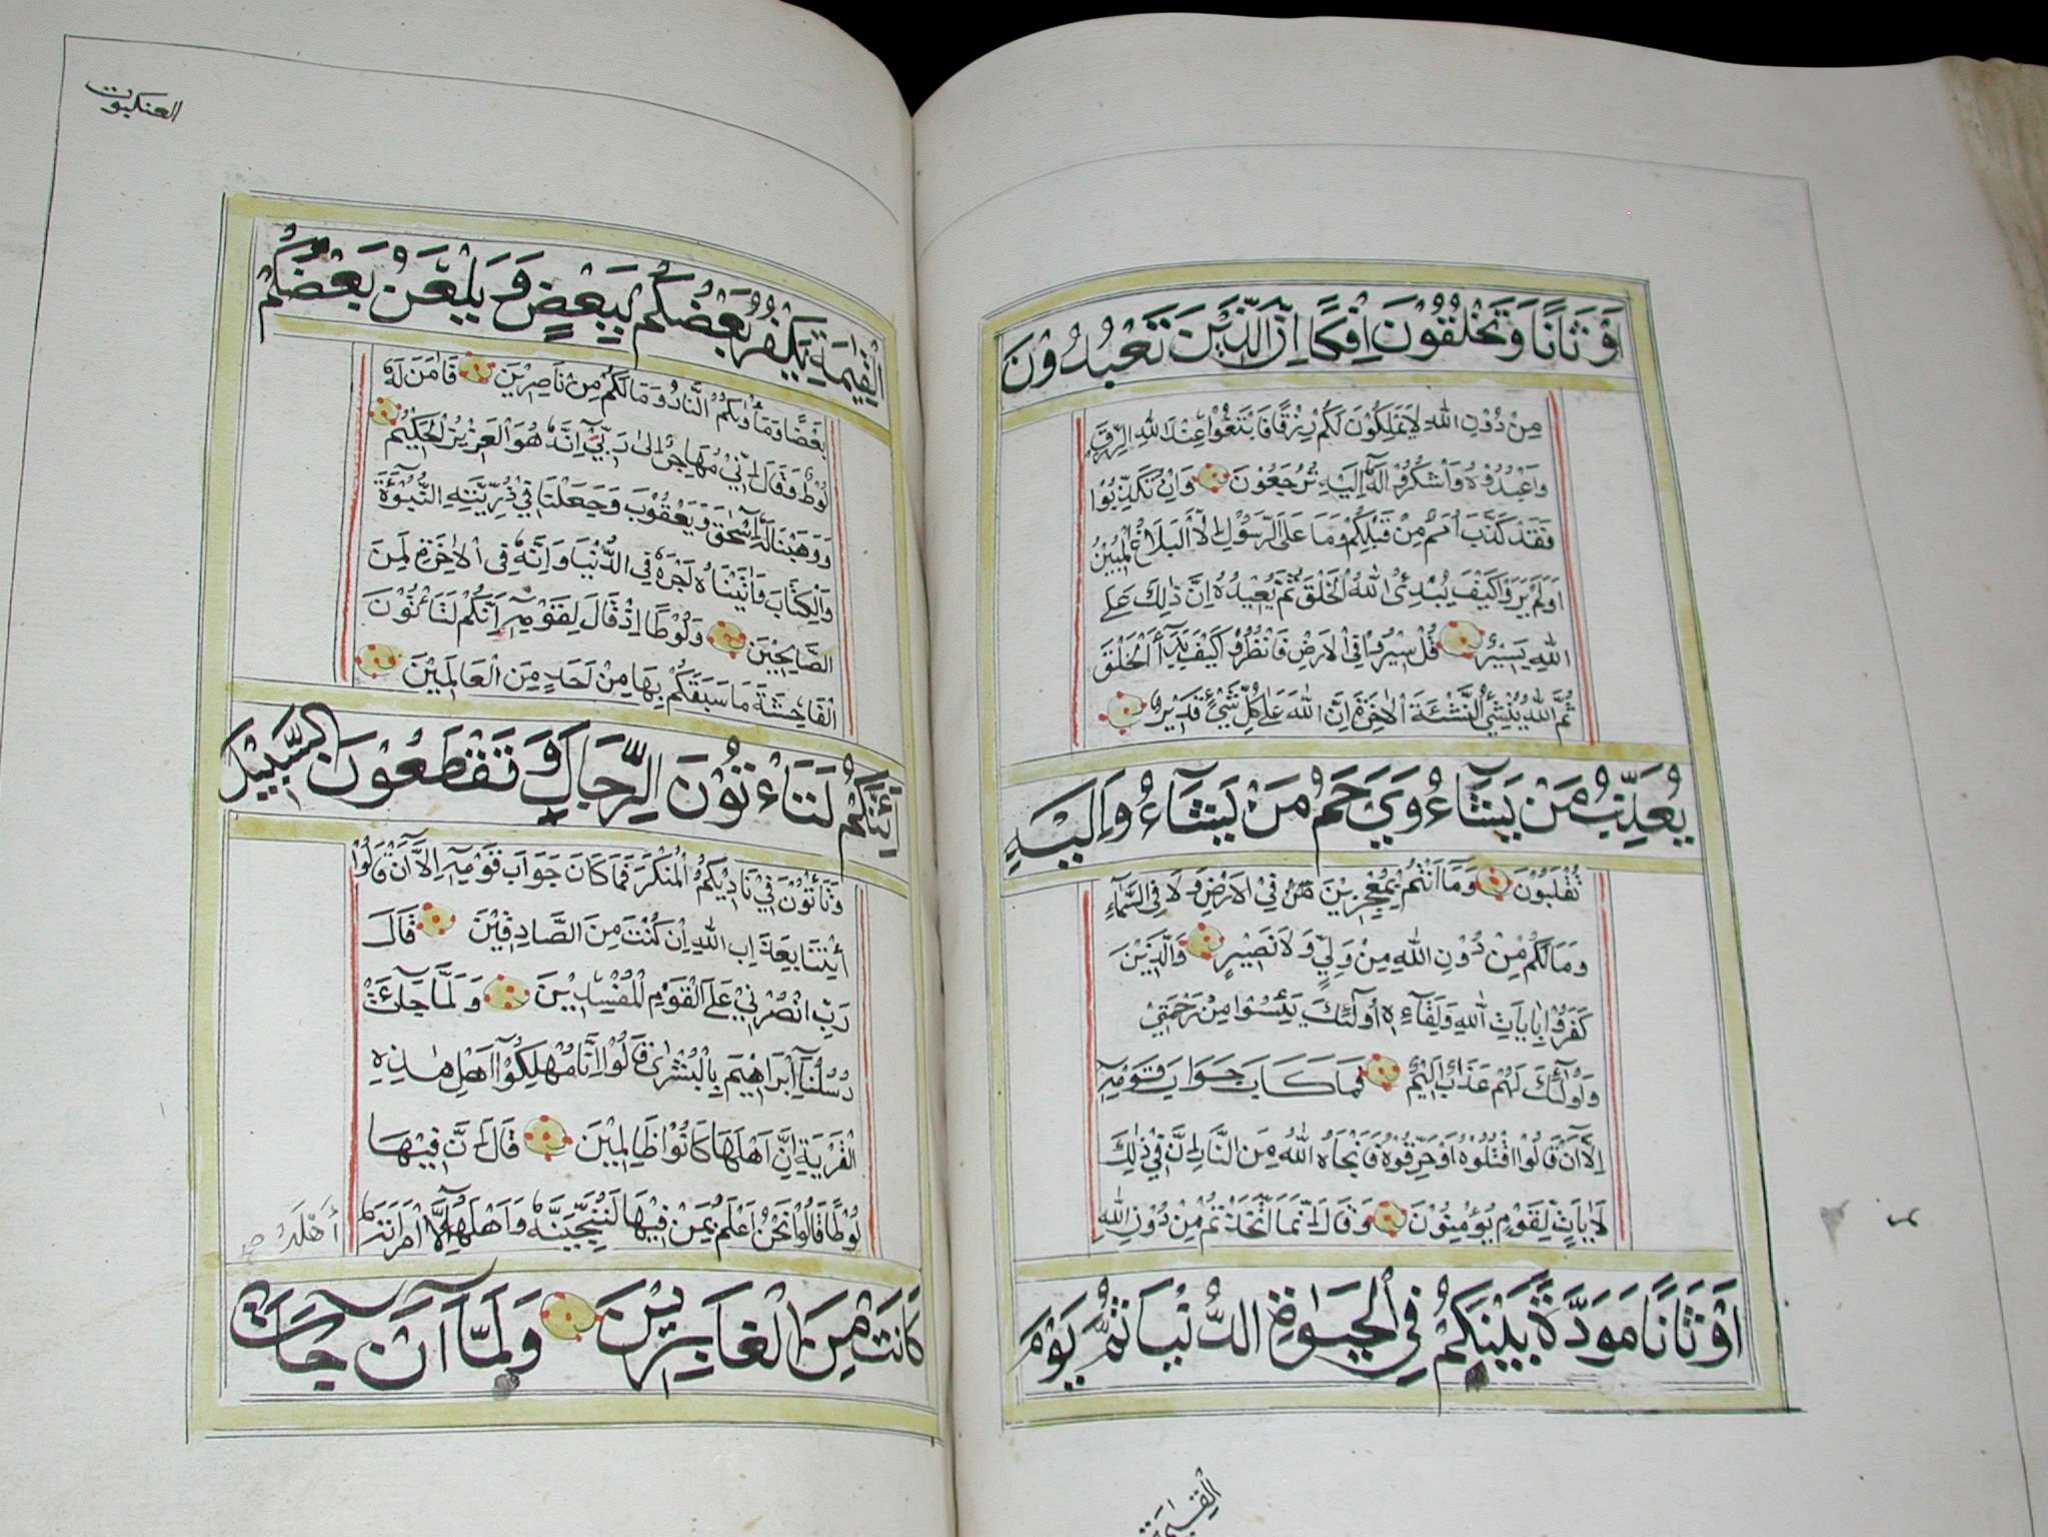 اَوْثَانًا وَتَخْلُقُوْنَ اِفْكًا اِنَّ الَّذِيْنَ تَعْبُدُوْنَ
مِنْ دُوْنِ اللّٰهِ لَا يَمْلِكُوْنَ لَكُمْ رِزْقًا فَابْتَغُوْا عِنْدَ اللّٰهِ الرِّزْقَ
وَاعْبُدُوْهُ وَاشْكُرُوْا لَهٗ اِلَيْهِ تُرْجَعُوْنَ وَاِنْ تُكَذِّبُوْا
فَقَدْ كَذَّبَ اُمَمٌ مِنْ قَبْلِكُمْ وَمَا عَلَى الرَّسُوْلِ اِلَّا الْبَلَاغُ الْمُبِيْنُ
اَوَلَمْ يَرَوْا كَيْفَ يُبْدِئُ اللّٰهُ الْخَلْقَ ثُمَّ يُعِيْدُهُ اِنَّ ذٰلِكَ عَلَى
اللّٰهِ يَسِيْرٌ قُلْ سِيْرُوْا فِى الْاَرْضِ فَانْظُرُوْا كَيْفَ بَدَاَ الْخَلْقَ
ثُمَّ اللّٰهُ يُنْشِئُ النَّشْئَةَ الْاٰخِرَةَ اِنَّ اللّٰهَ عَلٰى كُلِّ شَيْئٍ قَدِيْرٌ
يُعَذِّبُ مَنْ يَشَآءُ وَيَرْحَمُ مَنْ يَشَآءُ وَاِلَيْهِ
تُقْلَبُوْنَ وَمَا اَنْتُمْ بِمُعْجِزِيْنَ فِى الْاَرْضِ وَلَا فِى السَّمَآءِ
وَمَا لَكُمْ مِنْ دُوْنِ اللّٰهِ مِنْ وَلِيٍّ وَلَا نَصِيْرٍ وَالَّذِيْنَ
كَفَرُوْا بِاٰيَاتِ اللّٰهِ وَلِقَآءِهٖ اُولٰٓئِكَ يَئِسُوْا مِنْ رَحْمَتِيْ
وَاُولٰٓئِكَ لَهُمْ عَذَابٌ اَلِيْمٌ فَمَا كَانَ جَوَابَ قَوْمِهٖ
اِلَّآ اَنْ قَالُوا اقْتُلُوْهُ اَوْ حَرِّقُوْهُ فَاَنْجَاهُ اللّٰهُ مِنَ النَّارِ اِنَّ فِيْ ذٰلِكَ
لَاٰيَاتٍ لِقَوْمٍ يُؤْمِنُوْنَ وَقَالَ اِنَّمَا اتَّخَذْتُمْ مِنْ دُوْنِ اللّٰهِ
اَوْثَانًا مَوَدَّةَ بَيْنِكُمْ فِى الْحَيٰوةِ الدُّنْيَا ثُمَّ يَوْمَ
الْقِيٰمَةِ
العنكبوت
الْقِيٰمَةِ يَكْفُرُ بَعْضُكُمْ بِبَعْضٍ وَيَلْعَنُ بَعْضُكُمْ
بَعْضًا وَمَأْوٰىكُمُ النَّارُ وَمَا لَكُمْ مِنْ نَاصِرِيْنَ فَاٰمَنَ لَهٗ
لُوْطٌ وَقَالَ اِنِّيْ مُهَاجِرٌ اِلٰى رَبِّيْ اِنَّهٗ هُوَ الْعَزِيْزُ الْحَكِيْمُ
وَوَهَبْنَا لَهٗ اِسْحٰقَ وَيَعْقُوْبَ وَجَعَلْنَا فِيْ ذُرِّيَّتِهِ النُّبُوَّةَ
وَالْكِتَابَ وَاٰتَيْنَاهُ اَجْرَهٗ فِى الدُّنْيَا وَاِنَّهٗ فِى الْاٰخِرَةِ لَمِنَ
الصَّالِحِيْنَ وَلُوْطًا اِذْ قَالَ لِقَوْمِهٖ اِنَّكُمْ لَتَأْتُوْنَ
الْفَاحِشَةَ مَا سَبَقَكُمْ بِهَا مِنْ اَحَدٍ مِنَ الْعَالَمِيْنَ
اَئِنَّكُمْ لَتَاْءتُوْنَ الرِّجَالَ وَتَقْطَعُوْنَ السَّبِيْلَ
وَتَأْتُوْنَ فِيْ نَادِيْكُمُ الْمُنْكَرَ فَمَا كَانَ جَوَابَ قَوْمِهٖ اِلَّآ اَنْ قَالُوا
ائْتِنَا بِعَذَابِ اللّٰهِ اِنْ كُنْتَ مِنَ الصَّادِقِيْنَ قَالَ
رَبِّ انْصُرْنِيْ عَلَى الْقَوْمِ الْمُفْسِدِيْنَ وَلَمَّا جَآئَتْ
رُسُلُنَآ اِبْرَاهِيْمَ بِالْبُشْرٰى قَالُوْا اِنَّا مُهْلِكُوْآ اَهْلِ هٰذِهِ
الْقَرْيَةِ اِنَّ اَهْلَهَا كَانُوْا ظَالِمِيْنَ قَالَ اِنَّ فِيْهَا
لُوْطًا قَالُوْا نَحْنُ اَعْلَمُ بِمَنْ فِيْهَا لَنُنَجِّيَنَّهٗ وَاَهْلَهٗٓ اِلَّا امْرَاَتَهٗ
كَانَتْ مِنَ الْغَابِرِيْنَ وَلَمَّآ اَنْ جَآءَتْ